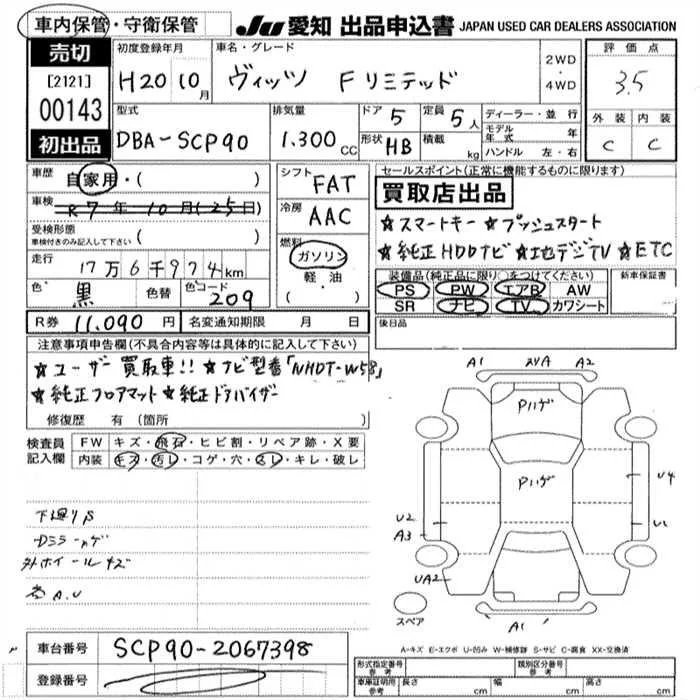 車内保管・守衛保管
JU 愛知 出品申込書 JAPAN USED CAR DEALERS ASSOCIATION
売切
[2121]
00143
初出品
初度登録年月
H20 10月
車名・グレード
ヴィッツ Fリミテッド
2WD
・
4WD
評価点
3.5
外装 内装
C C
型式
DBA-SCP90
排気量
1.300cc
ドア 5
定員 5人
形状 HB
積載 kg
ディーラー・並行
モデル年式 年
ハンドル 左・右
車歴 自家用・( )
車検 R7年10月(25日)
受検形態
車検付きのみ記入して下さい ( )
走行 17万6千974km
色 黒 色替 色コード 209
シフト FAT
冷房 AAC
燃料 ガソリン
軽・油
・( )
セールスポイント(正常に機能するものに限ります)
買取店出品
★スマートキー ★プッシュスタート
★純正HDDナビ ★地デジTV ★ETC
装備品(純正品に限り○をつけてください)
PS PW エアB AW
SR ナビ TV カワシート
新車保証書
後日品
R券 11,090円 名変通知期限 月 日
注意事項申告欄(不具合内容等は具体的に記入して下さい)
★ユーザー買取車!! ★ナビ型番「NHDT-W58」
★純正フロアマット ★純正ドアバイザー
修復歴 有(箇所 )
検査員記入欄
FW キズ・飛石・ヒビ割・リペア跡・X要
内装 キズ・汚レ・コゲ・穴・スレ・キレ・破レ
下廻りS
Dミラーハゲ
外ホイールキズ
A.U
A1 A2
Pハゲ
Pハゲ
U4
U2
A3
UA2
A1
スペア
A-キズ E-エクボ U-凹み W-補修跡 S-サビ C-腐食 XX-交換済
車台番号 SCP90-2067398
登録番号
形式指定番号 参考
類別区分番号 参考
車庫証明用 参考 長さ cm 幅 cm 高さ cm